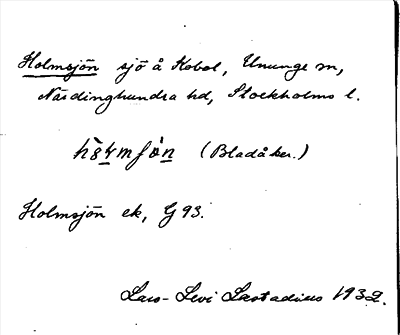 Holmsjön sjö å Kobol, Ununge sn,
Närdinghundra hd, Stockholms l.
(Bladåker.)
Holmsjön ek, G 93.
Lars-Levi Læstadius 1932.